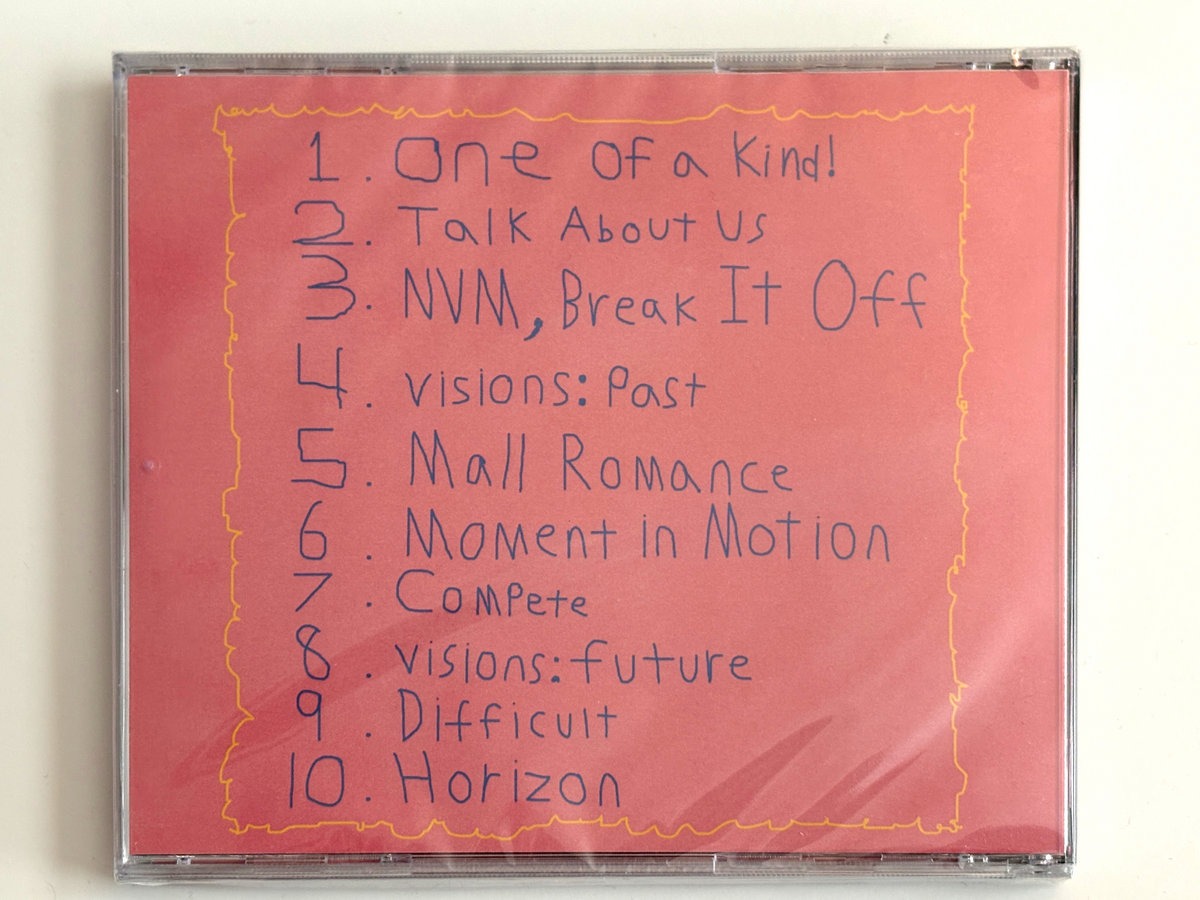 1. One Of a Kind!
2. Talk About Us
3. NVM, Break It Off
4. visions: Past
5. Mall Romance
6. Moment in Motion
7. Compete
8. visions: future
9. Difficult
10. Horizon